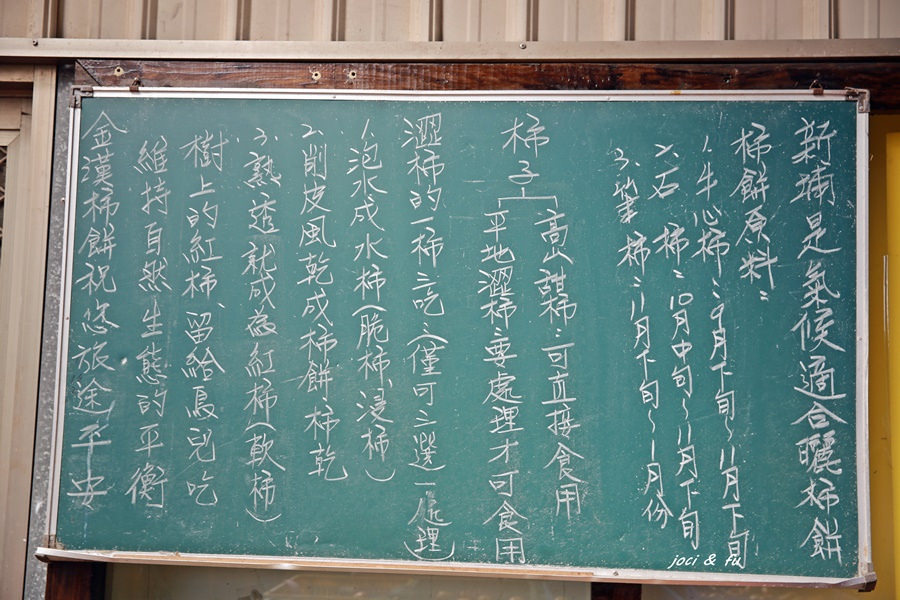 新埔是氣候適合曬柿餅
柿餅原料:
1.牛心柿:9月下旬~11月下旬
2.石柿:10月中旬~11月下旬
3.筆柿:11月下旬~1月份
柿子
高山甜柿:可直接食用
平地澀柿:要處理才可食用
澀柿的一柿三吃:(僅可三選一處理)
1.泡水成水柿(脆柿、浸柿)
2.削皮風乾成柿餅、柿乾
3.熟透就成為紅柿(軟柿)
樹上的紅柿、留給鳥兒吃
維持自然生態的平衡
金漢柿餅祝您旅途平安
joci & fu